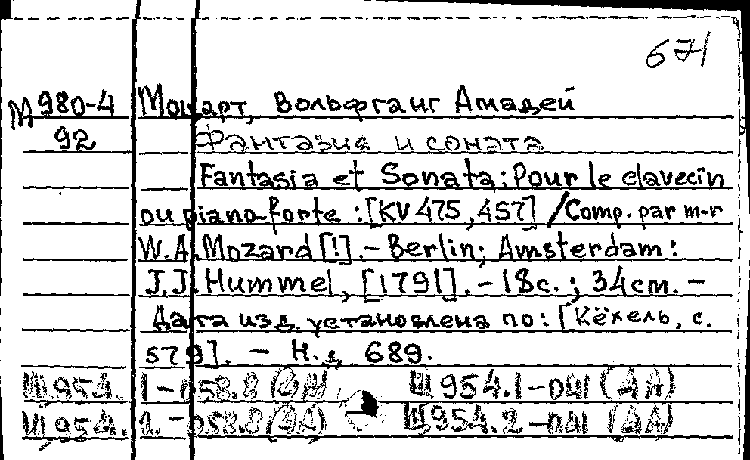 671
М 980-4 Моцарт, Вольфганг Амадей
92 Фантазия и соната
Fantasia et Sonata: Pour le clavecin
ou piano-forte : [KV 475, 457] / Comp. par m-r
W. A. Mozard [!]. – Berlin; Amsterdam :
J. J. Hummel, [1791]. – 18 с. ; 34 см. –
Дата изд. установлена по: [Кёхель, с.
579]. – Н. д. 689.
Ш 954. 1-058.8 Ш 954.1-041 (АА)
Ш 954. Ш 954.2-041 (АА)